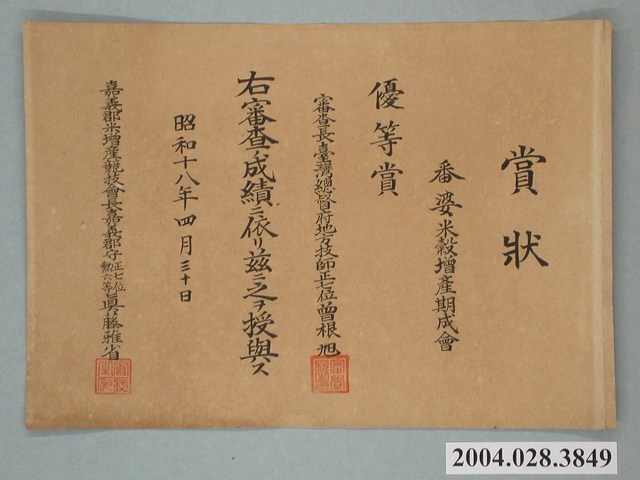 賞狀
番婆米穀增產期成會
優等賞
審查長臺灣總督府地方技師正七位曾根旭
右審查ノ成績ニ依リ茲ニ之ヲ授與ス
昭和十八年四月三十日
嘉義郡米增產競技會長嘉義郡守正七位勳六等眞藤雅省
2004.028.3849